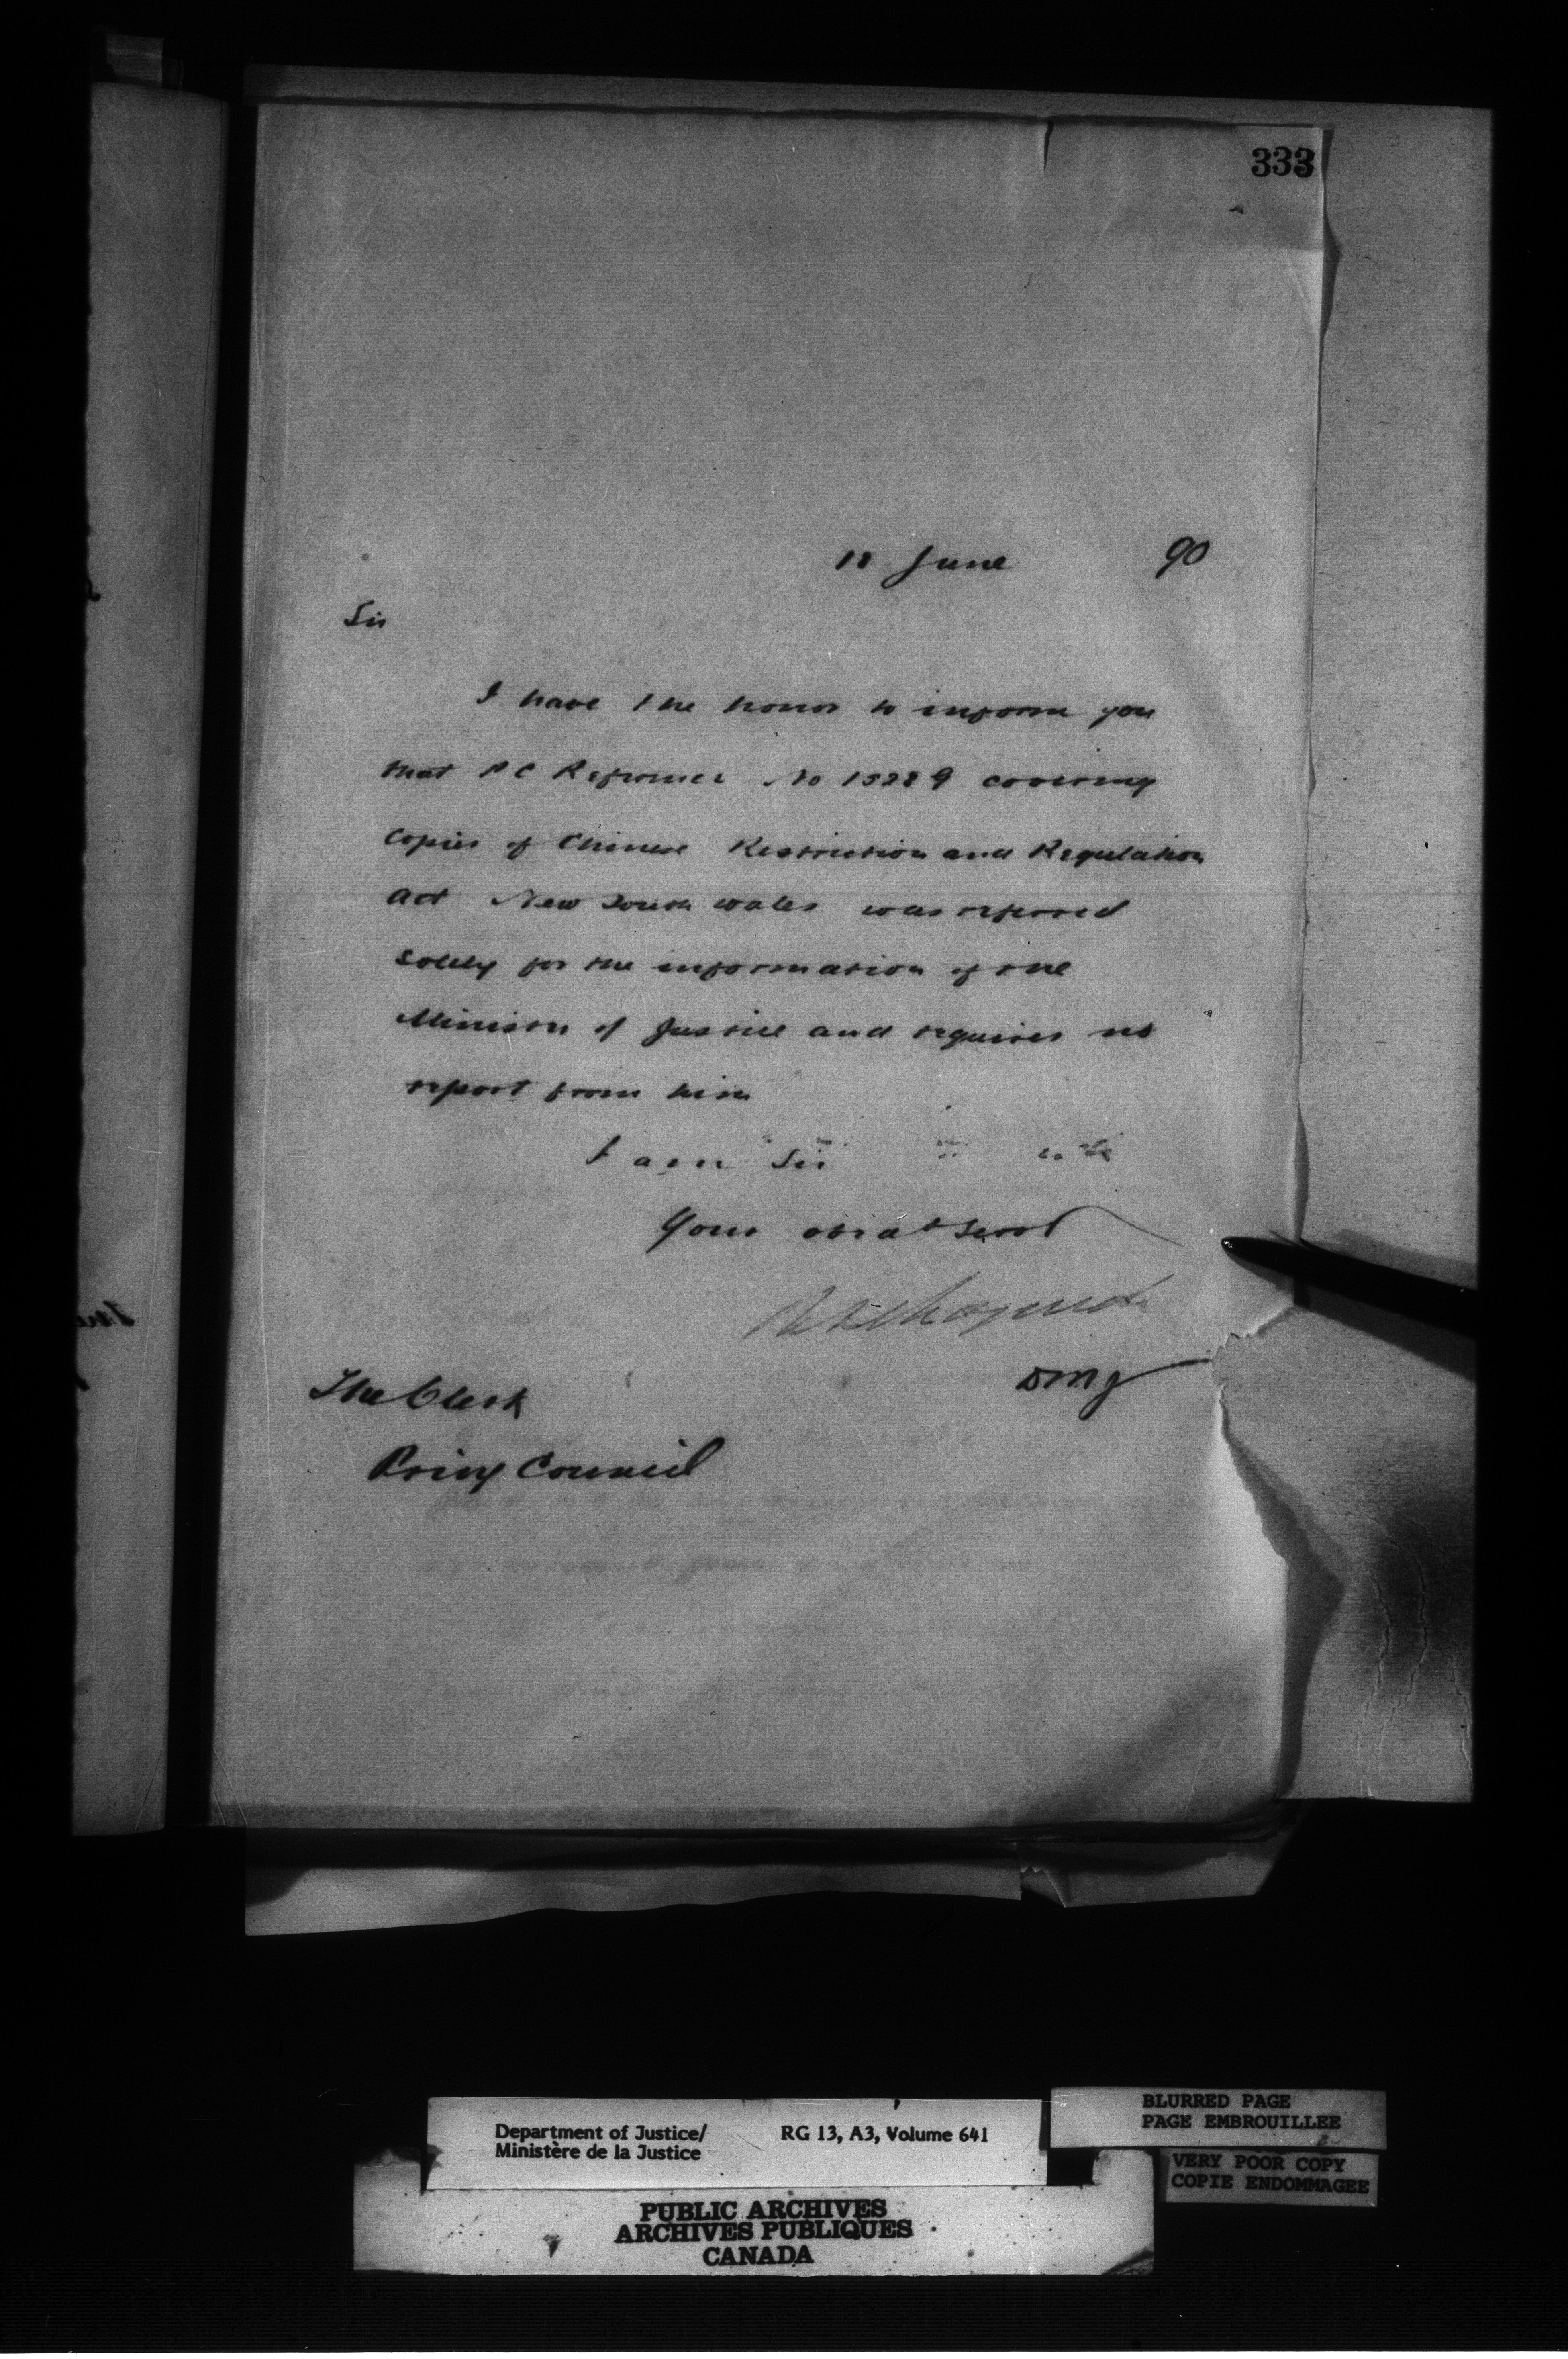 333
18 June 90
Sir
I have the honor to inform you
that PC Reference No 15289 covering
copies of Chinese Restriction and Regulation
Act New South Wales was referred
solely for the information of the
Minister of Justice and requires no
report from him
I am Sir
Your obdt Servt
DMJ
The Clerk
Privy Council
Department of Justice/ RG 13, A3, Volume 641
Ministère de la Justice
BLURRED PAGE
PAGE EMBROUILLEE
VERY POOR COPY
COPIE ENDOMMAGEE
PUBLIC ARCHIVES
ARCHIVES PUBLIQUES
CANADA